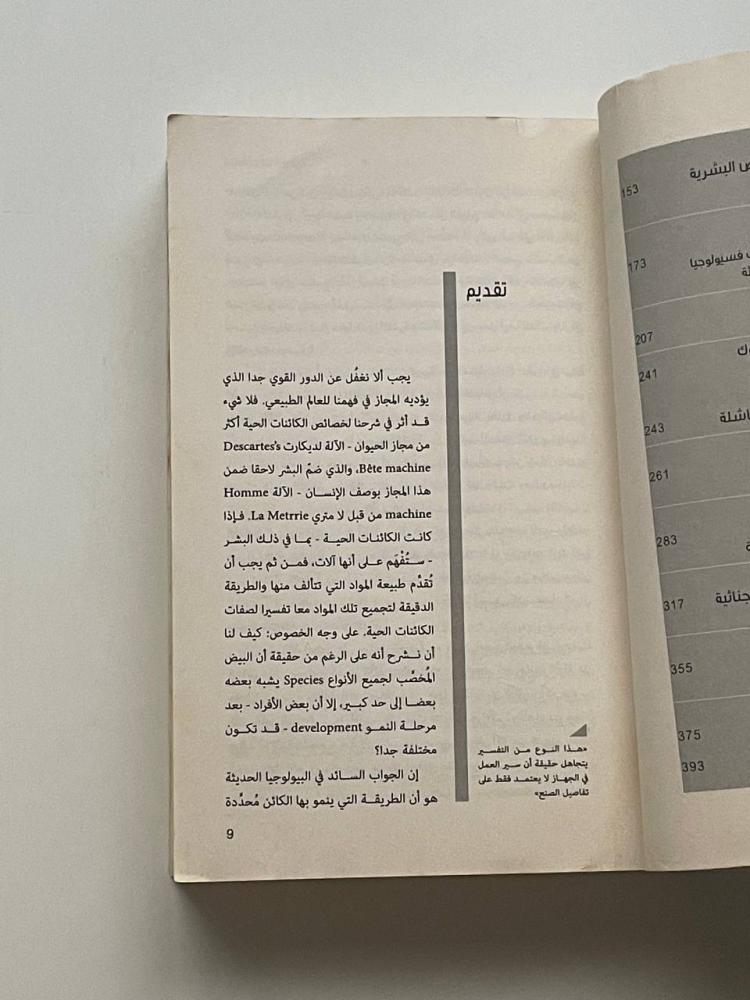 تقديم
يجب ألا نغفُل عن الدور القوي جدا الذي
يؤديه المجاز في فهمنا للعالم الطبيعي. فلا شيء
قد أثر في شرحنا لخصائص الكائنات الحية أكثر
من مجاز الحيوان - الآلة لديكارت Descartes's
Bête machine، والذي ضمّ البشر لاحقا ضمن
هذا المجاز بوصف الإنسان - الآلة Homme
machine من قبل لا متري La Metrrie. فإذا
كانت الكائنات الحية - بما في ذلك البشر
- ستُفْهَم على أنها آلات، فمن ثم يجب أن
تُقدَّم طبيعة المواد التي تتألف منها والطريقة
الدقيقة لتجميع تلك المواد معا تفسيرا لصفات
الكائنات الحية. على وجه الخصوص: كيف لنا
أن نشرح أنه على الرغم من حقيقة أن البيض
المُخصَّب لجميع الأنواع Species يشبه بعضه
بعضا إلى حد كبير، إلا أن بعض الأفراد - بعد
مرحلة النمو development - قد تكون
مختلفة جدا؟
إن الجواب السائد في البيولوجيا الحديثة
هو أن الطريقة التي ينمو بها الكائن مُحدَّدة
«هذا النوع من التفسير
يتجاهل حقيقة أن سير العمل
في الجهاز لا يعتمد فقط على
تفاصيل الصنع»
9
البشرية
153
فسيولوجيا
173
207
241
243
261
283
جنائية
317
355
375
393